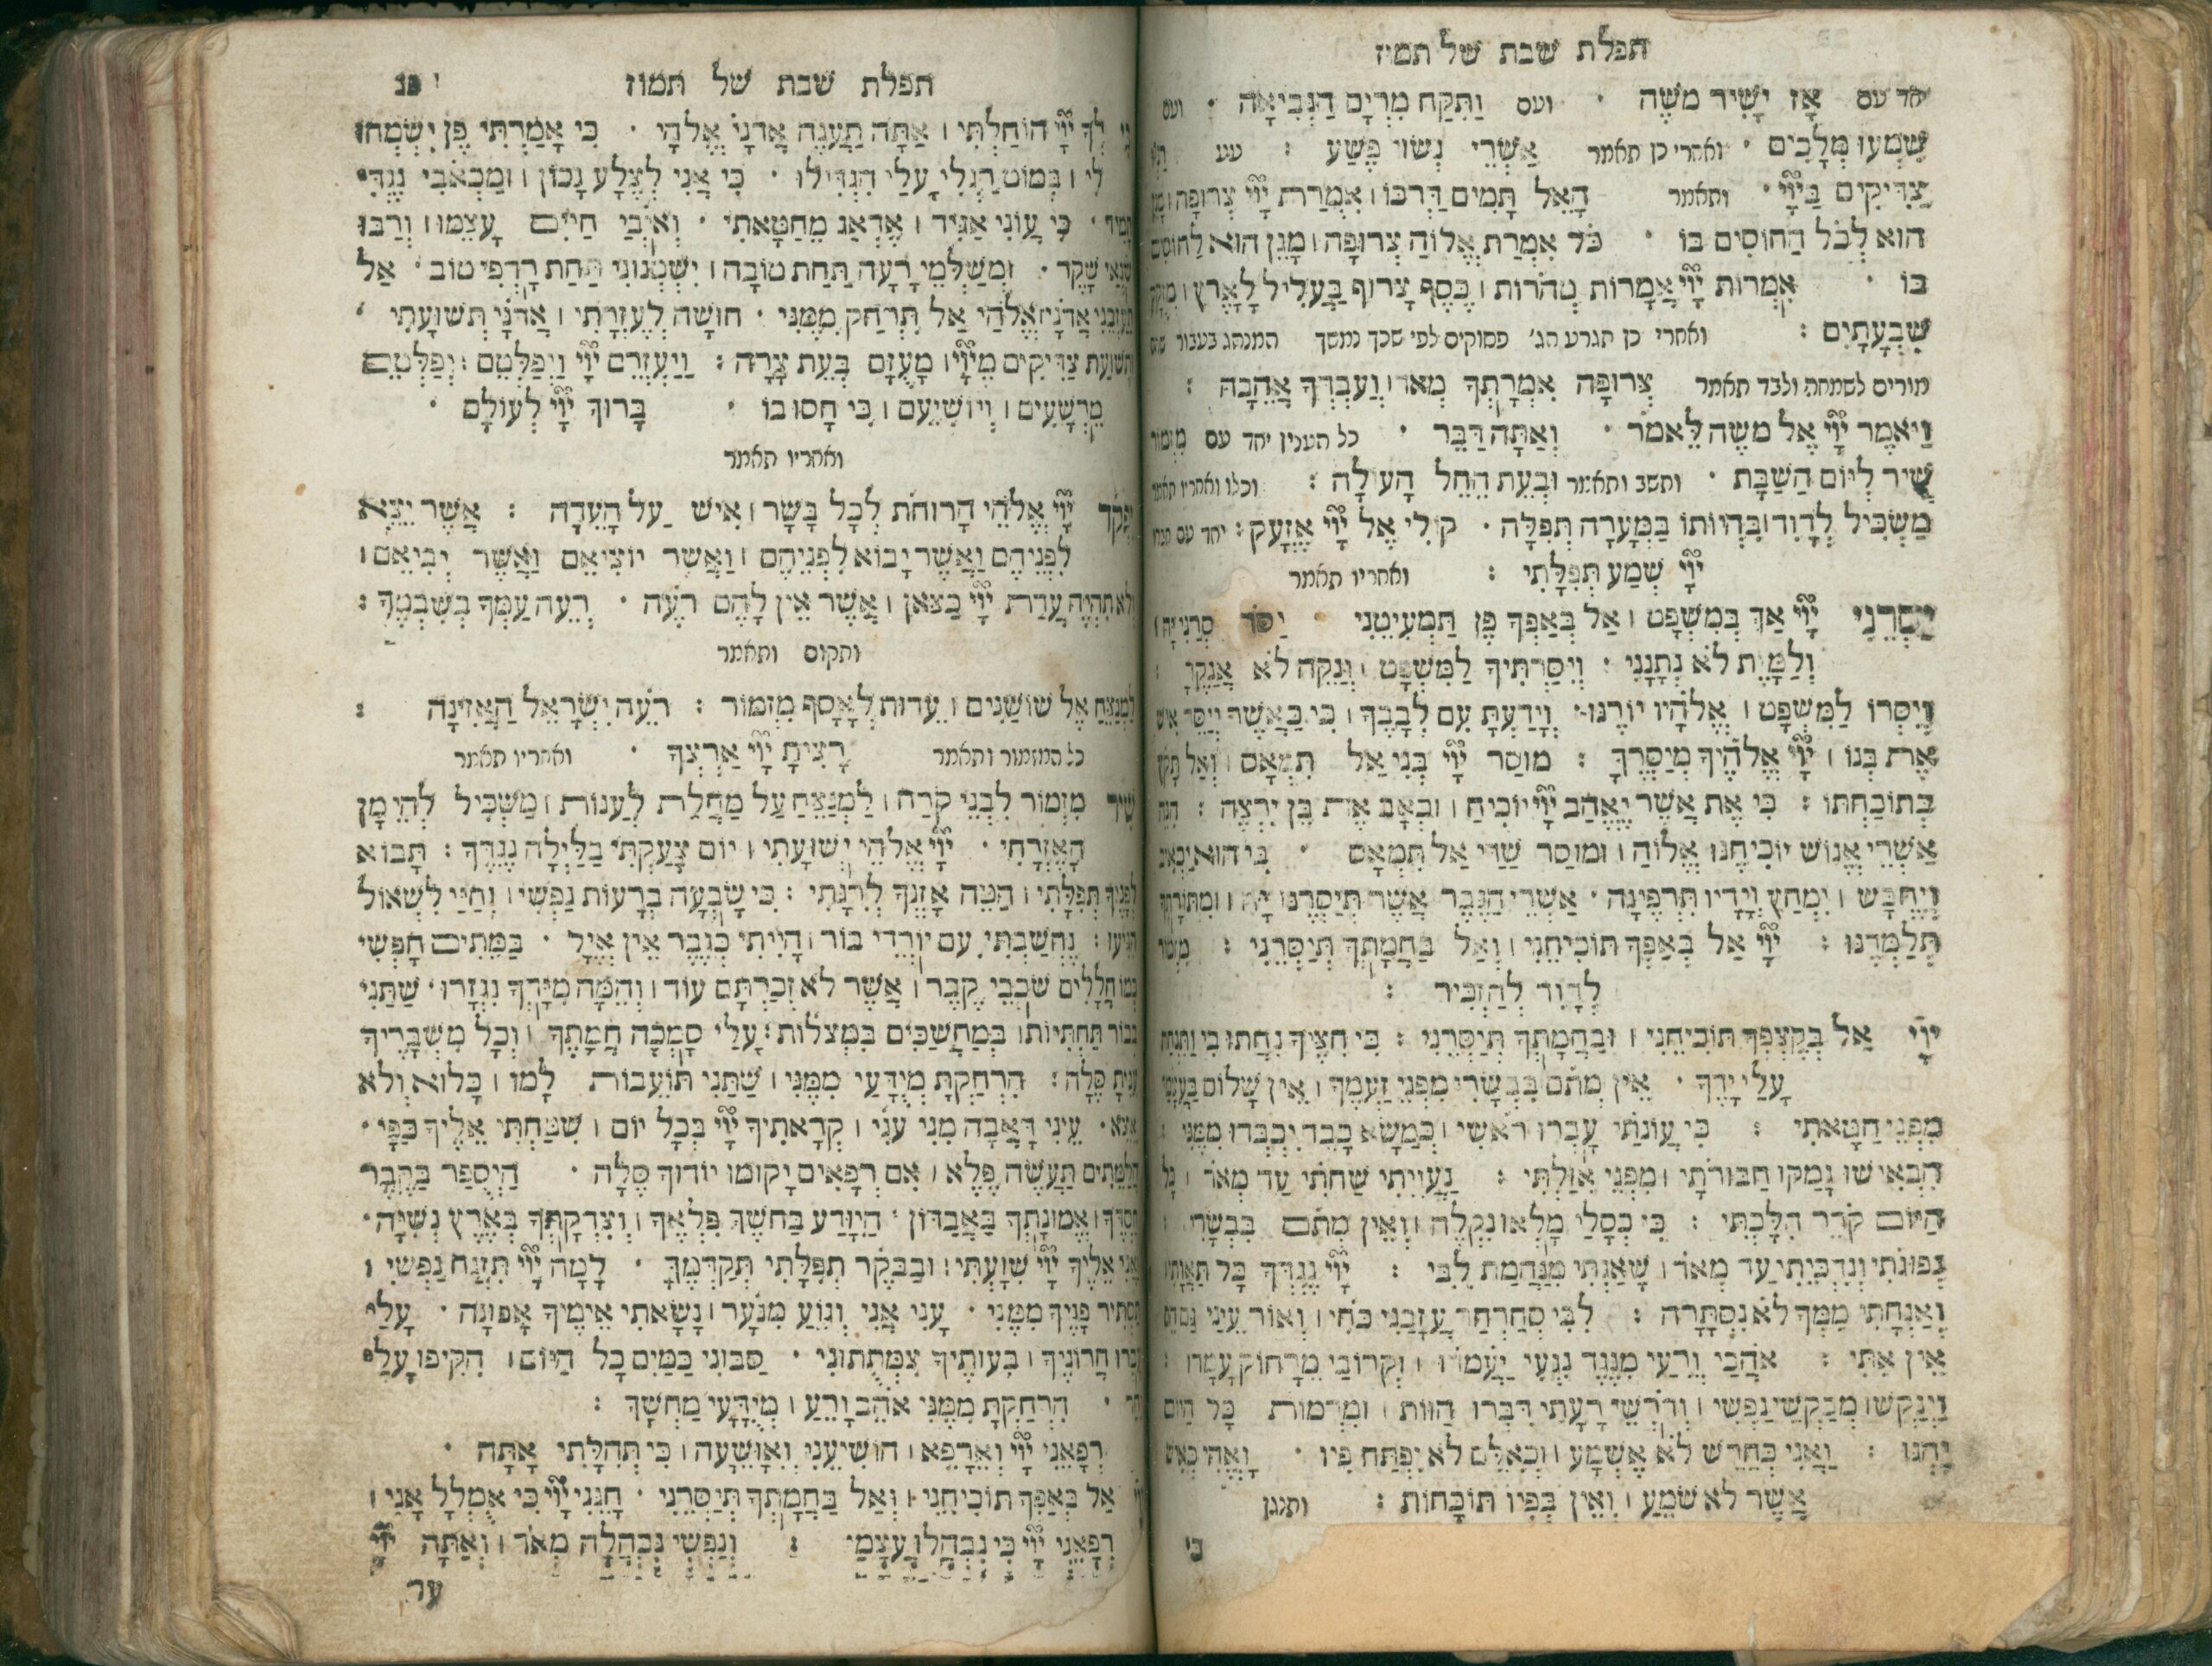 תפלת שבת של תמוז
יחד עם אָז יָשִׁיר משֶׁה · ועם וַתִּקַּח מִרְיָם הַנְּבִיאָה · ועם
שִׁמְעוּ מְלָכִים · ואחרי כן תאמר אַשְׁרֵי נְשׂוּי פֶּשַׁע : עע
צַדִּיקִים בַּיְיָ · ותאמר הָאֵל תָּמִים דַּרְכּוֹ ׀ אִמְרַת יְיָ צְרוּפָה ׀ מָגֵן
הוּא לְכֹל הַחוֹסִים בּוֹ · כֹּל אִמְרַת אֱלוֹהַּ צְרוּפָה ׀ מָגֵן הוּא לַחוֹסִים
בּוֹ · אִמְרוֹת יְיָ אֲמָרוֹת טְהֹרוֹת ׀ כֶּסֶף צָרוּף בַּעֲלִיל לָאָרֶץ ׀ מְזֻקָּק
שִׁבְעָתָיִם : ואחרי כן תגרע הג׳ פסוקים לפי שכך נמשך המנהג בעבור
מורים לשמחה ולבד תאמר צְרוּפָה אִמְרָתְךָ מְאֹד ׀ וְעַבְדְּךָ אֲהֵבָהּ :
וַיֹּאמֶר יְיָ אֶל משֶׁה לֵּאמֹר · וְאַתָּה דַּבֵּר · כל הענין יחד עם מִזְמוֹר
שִׁיר לְיוֹם הַשַּׁבָּת · ותשב ותאמר וּבְעֵת הֵחֵל הָעוֹלָה : וכלו ואחריו תאמר
מַשְׂכִּיל לְדָוִד ׀ בִּהְיוֹתוֹ בַמְּעָרָה תְפִלָּה · קוֹלִי אֶל יְיָ אֶזְעָק : יחד עם
יְיָ שְׁמַע תְּפִלָּתִי : ואחריו תאמר
יַסְּרֵנִי יְיָ אַךְ בְּמִשְׁפָּט ׀ אַל בְּאַפְּךָ פֶּן תַּמְעִיטֵנִי · יַסֹּר יִסְּרַנִּי יָּהּ ׀
וְלַמָּוֶת לֹא נְתָנָנִי : וְיִסַּרְתִּיךָ לַמִּשְׁפָּט ׀ וְנַקֵּה לֹא אֲנַקֶּךָּ :
וְיִסְּרוֹ לַמִּשְׁפָּט ׀ אֱלֹהָיו יוֹרֶנּוּ · וְיָדַעְתָּ עִם לְבָבֶךָ ׀ כִּי כַּאֲשֶׁר יְיַסֵּר אִישׁ
אֶת בְּנוֹ ׀ יְיָ אֱלֹהֶיךָ מְיַסְּרֶךָּ : מוּסַר יְיָ בְּנִי אַל תִּמְאָס ׀ וְאַל תָּקֹץ
בְּתוֹכַחְתּוֹ : כִּי אֶת אֲשֶׁר יֶאֱהַב יְיָ יוֹכִיחַ ׀ וּכְאָב אֶת בֵּן יִרְצֶה : הִנֵּה
אַשְׁרֵי אֱנוֹשׁ יוֹכִיחֶנּוּ אֱלוֹהַּ ׀ וּמוּסַר שַׁדַּי אַל תִּמְאָס · כִּי הוּא יַכְאִיב
וְיֶחְבָּשׁ ׀ יִמְחַץ וְיָדָיו תִּרְפֶּינָה · אַשְׁרֵי הַגֶּבֶר אֲשֶׁר תְּיַסְּרֶנּוּ יָּהּ ׀ וּמִתּוֹרָתְךָ
תְלַמְּדֶנּוּ : יְיָ אַל בְּאַפְּךָ תוֹכִיחֵנִי ׀ וְאַל בַּחֲמָתְךָ תְיַסְּרֵנִי : מִזְמוֹר
לְדָוִד לְהַזְכִּיר :
יְיָ אַל בְּקֶצְפְּךָ תוֹכִיחֵנִי ׀ וּבַחֲמָתְךָ תְיַסְּרֵנִי : כִּי חִצֶּיךָ נִחֲתוּ בִי וַתִּנְחַת
עָלַי יָדֶךָ · אֵין מְתֹם בִּבְשָׂרִי מִפְּנֵי זַעְמֶךָ ׀ אֵין שָׁלוֹם בַּעֲצָמַי
מִפְּנֵי חַטָּאתִי : כִּי עֲוֹנֹתַי עָבְרוּ רֹאשִׁי ׀ כְּמַשָּׂא כָבֵד יִכְבְּדוּ מִמֶּנִּי :
הִבְאִישׁוּ נָמַקּוּ חַבּוּרֹתָי ׀ מִפְּנֵי אִוַּלְתִּי : נַעֲוֵיתִי שַׁחֹתִי עַד מְאֹד ׀ כָּל
הַיּוֹם קֹדֵר הִלָּכְתִּי : כִּי כְסָלַי מָלְאוּ נִקְלֶה ׀ וְאֵין מְתֹם בִּבְשָׂרִי :
נְפוּגֹתִי וְנִדְכֵּיתִי עַד מְאֹד ׀ שָׁאַגְתִּי מִנַּהֲמַת לִבִּי : יְיָ נֶגְדְּךָ כָל תַּאֲוָתִי
וְאַנְחָתִי מִמְּךָ לֹא נִסְתָּרָה : לִבִּי סְחַרְחַר עֲזָבַנִי כֹחִי ׀ וְאוֹר עֵינַי גַּם הֵם
אֵין אִתִּי : אֹהֲבַי וְרֵעַי מִנֶּגֶד נִגְעִי יַעֲמֹדוּ ׀ וּקְרוֹבַי מֵרָחוֹק עָמָדוּ :
וַיְנַקְשׁוּ מְבַקְשֵׁי נַפְשִׁי ׀ וְדֹרְשֵׁי רָעָתִי דִּבְּרוּ הַוּוֹת ׀ וּמִרְמוֹת כָּל הַיּוֹם
יֶהְגּוּ : וַאֲנִי כְחֵרֵשׁ לֹא אֶשְׁמָע ׀ וּכְאִלֵּם לֹא יִפְתַּח פִּיו · וָאֱהִי כְּאִישׁ
אֲשֶׁר לֹא שֹׁמֵעַ ׀ וְאֵין בְּפִיו תּוֹכָחוֹת : ותנגן
כי
תפלת שבת של תמוז
כִּי לְךָ יְיָ הוֹחָלְתִּי ׀ אַתָּה תַעֲנֶה אֲדֹנָי אֱלֹהָי · כִּי אָמַרְתִּי פֶּן יִשְׂמְחוּ
לִי ׀ בְּמוֹט רַגְלִי עָלַי הִגְדִּילוּ · כִּי אֲנִי לְצֶלַע נָכוֹן ׀ וּמַכְאֹבִי נֶגְדִּי
תָמִיד · כִּי עֲוֹנִי אַגִּיד ׀ אֶדְאַג מֵחַטָּאתִי · וְאֹיְבַי חַיִּים עָצֵמוּ ׀ וְרַבּוּ
שֹׂנְאַי שָׁקֶר · וּמְשַׁלְּמֵי רָעָה תַּחַת טוֹבָה ׀ יִשְׂטְנוּנִי תַּחַת רָדְפִי טוֹב · אַל
תַּעַזְבֵנִי אֲדֹנָי אֱלֹהַי אַל תִּרְחַק מִמֶּנִּי · חוּשָׁה לְעֶזְרָתִי ׀ אֲדֹנָי תְּשׁוּעָתִי ·
וּתְשׁוּעַת צַדִּיקִים מֵיְיָ ׀ מָעֻזָּם בְּעֵת צָרָה : וַיַּעְזְרֵם יְיָ וַיְפַלְּטֵם : יְפַלְּטֵם
מֵרְשָׁעִים ׀ וְיוֹשִׁיעֵם ׀ כִּי חָסוּ בוֹ · בָּרוּךְ יְיָ לְעוֹלָם ·
ואחריו תאמר
יִפְקֹד יְיָ אֱלֹהֵי הָרוּחֹת לְכָל בָּשָׂר ׀ אִישׁ עַל הָעֵדָה : אֲשֶׁר יֵצֵא
לִפְנֵיהֶם וַאֲשֶׁר יָבוֹא לִפְנֵיהֶם ׀ וַאֲשֶׁר יוֹצִיאֵם וַאֲשֶׁר יְבִיאֵם ׀
וְלֹא תִהְיֶה עֲדַת יְיָ כַּצֹּאן ׀ אֲשֶׁר אֵין לָהֶם רֹעֶה · רְעֵה עַמְּךָ בְשִׁבְטֶךָ :
ותקום ותאמר
לַמְנַצֵּחַ אֶל שׁוֹשַׁנִּים ׀ עֵדוּת לְאָסָף מִזְמוֹר : רֹעֵה יִשְׂרָאֵל הַאֲזִינָה :
כל המזמור ותאמר רָצִיתָ יְיָ אַרְצֶךָ · ואחריו תאמר
שִׁיר מִזְמוֹר לִבְנֵי קֹרַח ׀ לַמְנַצֵּחַ עַל מָחֲלַת לְעַנּוֹת ׀ מַשְׂכִּיל לְהֵימָן
הָאֶזְרָחִי · יְיָ אֱלֹהֵי יְשׁוּעָתִי ׀ יוֹם צָעַקְתִּי בַלַּיְלָה נֶגְדֶּךָ : תָּבוֹא
לְפָנֶיךָ תְּפִלָּתִי ׀ הַטֵּה אָזְנְךָ לְרִנָּתִי : כִּי שָׂבְעָה בְרָעוֹת נַפְשִׁי ׀ וְחַיַּי לִשְׁאוֹל
הִגִּיעוּ : נֶחְשַׁבְתִּי עִם יוֹרְדֵי בוֹר ׀ הָיִיתִי כְּגֶבֶר אֵין אֱיָל · בַּמֵּתִים חָפְשִׁי
כְּמוֹ חֲלָלִים שֹׁכְבֵי קֶבֶר ׀ אֲשֶׁר לֹא זְכַרְתָּם עוֹד ׀ וְהֵמָּה מִיָּדְךָ נִגְזָרוּ · שַׁתַּנִי
בְּבוֹר תַּחְתִּיּוֹת ׀ בְּמַחֲשַׁכִּים בִּמְצֹלוֹת : עָלַי סָמְכָה חֲמָתֶךָ ׀ וְכָל מִשְׁבָּרֶיךָ
עִנִּיתָ סֶּלָה : הִרְחַקְתָּ מְיֻדָּעַי מִמֶּנִּי ׀ שַׁתַּנִי תוֹעֵבוֹת לָמוֹ ׀ כָּלֻא וְלֹא
אֵצֵא · עֵינִי דָאֲבָה מִנִּי עֹנִי ׀ קְרָאתִיךָ יְיָ בְּכָל יוֹם ׀ שִׁטַּחְתִּי אֵלֶיךָ כַפָּי ·
הֲלַמֵּתִים תַּעֲשֶׂה פֶּלֶא ׀ אִם רְפָאִים יָקוּמוּ יוֹדוּךָ סֶּלָה · הַיְסֻפַּר בַּקֶּבֶר
חַסְדֶּךָ ׀ אֱמוּנָתְךָ בָּאֲבַדּוֹן · הֲיִוָּדַע בַּחשֶׁךְ פִּלְאֶךָ ׀ וְצִדְקָתְךָ בְּאֶרֶץ נְשִׁיָּה ·
וַאֲנִי אֵלֶיךָ יְיָ שִׁוַּעְתִּי ׀ וּבַבֹּקֶר תְּפִלָּתִי תְקַדְּמֶךָּ · לָמָה יְיָ תִּזְנַח נַפְשִׁי ׀
תַּסְתִּיר פָּנֶיךָ מִמֶּנִּי · עָנִי אֲנִי וְגוֵֹעַ מִנֹּעַר ׀ נָשָׂאתִי אֵמֶיךָ אָפוּנָה · עָלַי
עָבְרוּ חֲרוֹנֶיךָ ׀ בִּעוּתֶיךָ צִמְּתֻתוּנִי · סַבּוּנִי כַמַּיִם כָּל הַיּוֹם ׀ הִקִּיפוּ עָלַי
יָחַד · הִרְחַקְתָּ מִמֶּנִּי אֹהֵב וָרֵעַ ׀ מְיֻדָּעַי מַחְשָׁךְ :
רְפָאֵנִי יְיָ וְאֵרָפֵא ׀ הוֹשִׁיעֵנִי וְאִוָּשֵׁעָה ׀ כִּי תְהִלָּתִי אָתָּה ·
יְיָ אַל בְּאַפְּךָ תוֹכִיחֵנִי ׀ וְאַל בַּחֲמָתְךָ תְיַסְּרֵנִי · חָנֵּנִי יְיָ כִּי אֻמְלַל אָנִי ׀
רְפָאֵנִי יְיָ כִּי נִבְהֲלוּ עֲצָמָי : וְנַפְשִׁי נִבְהֲלָה מְאֹד ׀ וְאַתָּה יְיָ
עד